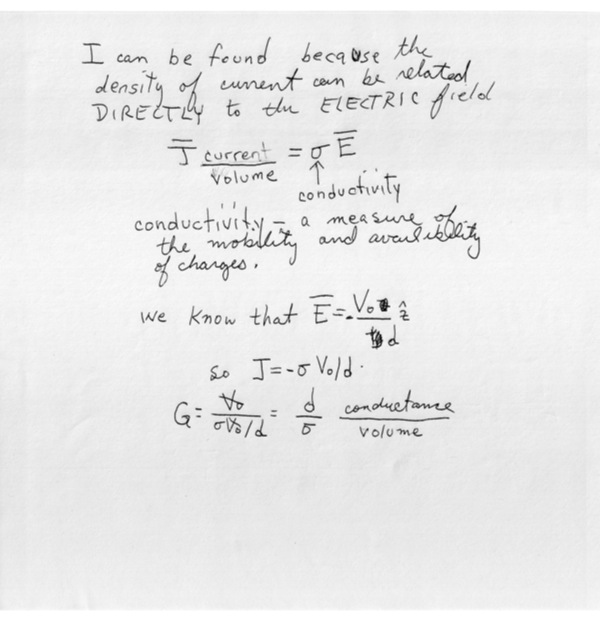 I can be found because the
density of current can be related
DIRECTLY to the ELECTRIC field
J̅ current/volume = σ E̅
↑
conductivity
conductivity – a measure of
the mobility and availability
of charges.
we know that E̅ = -V₀/d ẑ
so J = -σ V₀/d.
G = V₀/(σV₀/d) = d/σ conductance/volume